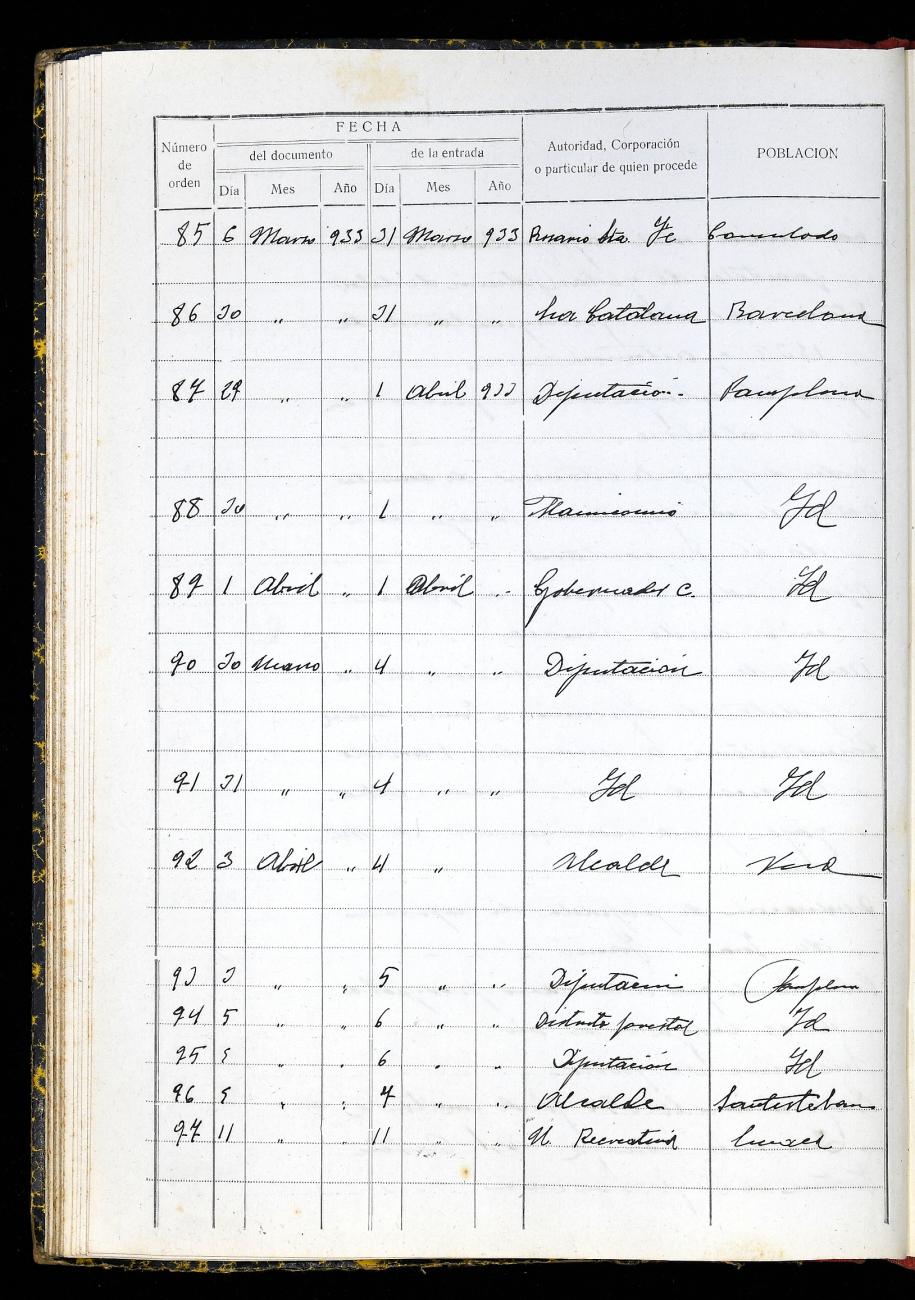 FECHA
Número de orden
del documento
de la entrada
Autoridad, Corporación o particular de quien procede
POBLACION
Día Mes Año Día Mes Año
85 6 Marzo 933 31 Marzo 933 Rosario Sta. Fe Consulado
86 30 " " 31 " " La Catalana Barcelona
87 29 " " 1 Abril 933 Diputación Pamplona
88 30 " " 1 " " Manicomio Id
89 1 Abril " 1 Abril " Gobernador C. Id
90 30 Marzo " 4 " " Diputación Id
91 31 " " 4 " " Id Id
92 3 Abril " 4 " Alcalde Vera
93 3 " " 5 " " Diputación Pamplona
94 5 " " 6 " " Distrito forestal Id
95 5 " " 6 " " Diputación Id
96 5 " " 7 " " Alcalde Santesteban
97 11 " " 11 " " U. Recreativa